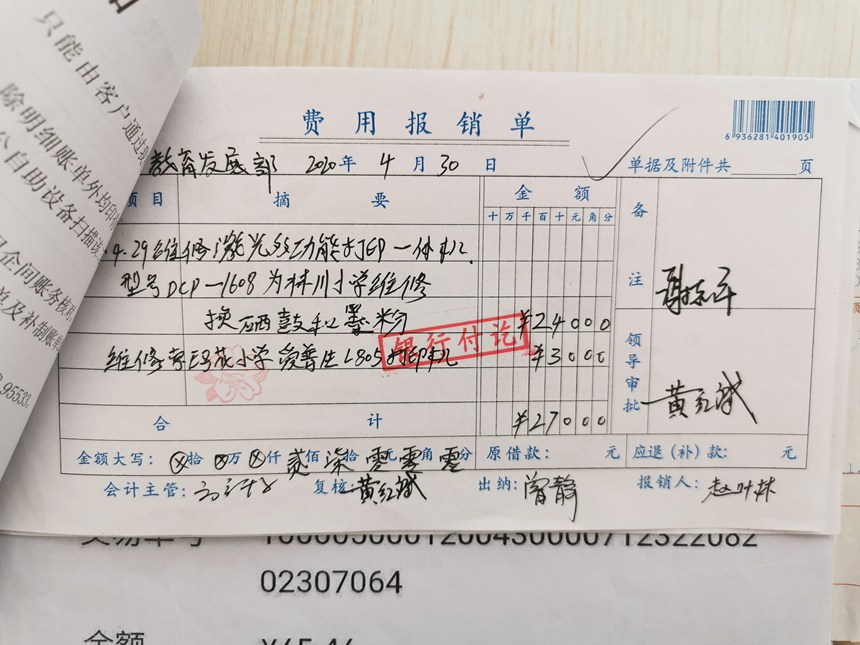 只能由客户通过
除明细账单外均
自助设备扫描
企间账务核
单及补制账单
95533
费用报销单
6 936281 401905
教育发展部 2020年 4月 30日 单据及附件共 页
项目 摘要 金额 备注
十万千百十元角分
4.29维修激光多功能打印一体机
型号DCP-1608为林川小学维修
换硒鼓和墨粉 ¥24000
银行付讫
维修 小学爱普生L805打印机 ¥3000
领导审批 黄红斌
合计 ¥27000
金额大写: ⊗拾⊗万⊗仟贰佰柒拾零元零角零分 原借款: 元 应退(补)款: 元
会计主管: 复核: 黄红斌 出纳: 曾静 报销人: 赵叶林
交易单号 1000050001200430000712322082
02307064
金额 ¥65.46